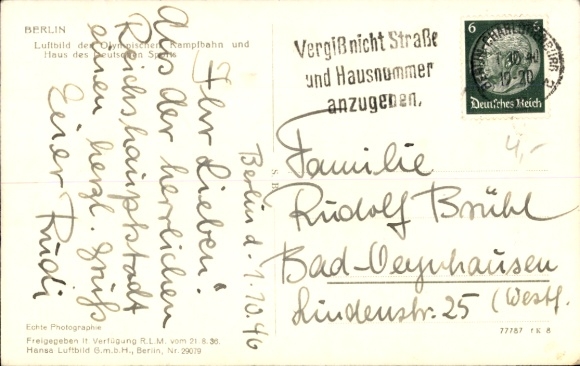 BERLIN
Luftbild der Olympischen Kampfbahn und
Haus des Deutschen Sports
Vergiß nicht Straße
und Hausnummer
anzugeben.
6
6
Deutsches Reich
BERLIN-CHARLOTTENBURG
-1.10.40
-20
4,-
Ihr Lieben!
Aus der herrlichen
Reichshauptstadt
einen herzl. Gruß
Euer Rudi
Berlin d. 1.10.40
Familie
Rudolf Brühl
Bad-Oeynhausen
Lindenstr. 25 (Westf.
Echte Photographie
Freigegeben lt. Verfügung R.L.M. vom 21.8.36
Hansa Luftbild G.m.b.H., Berlin, Nr. 29079
77787